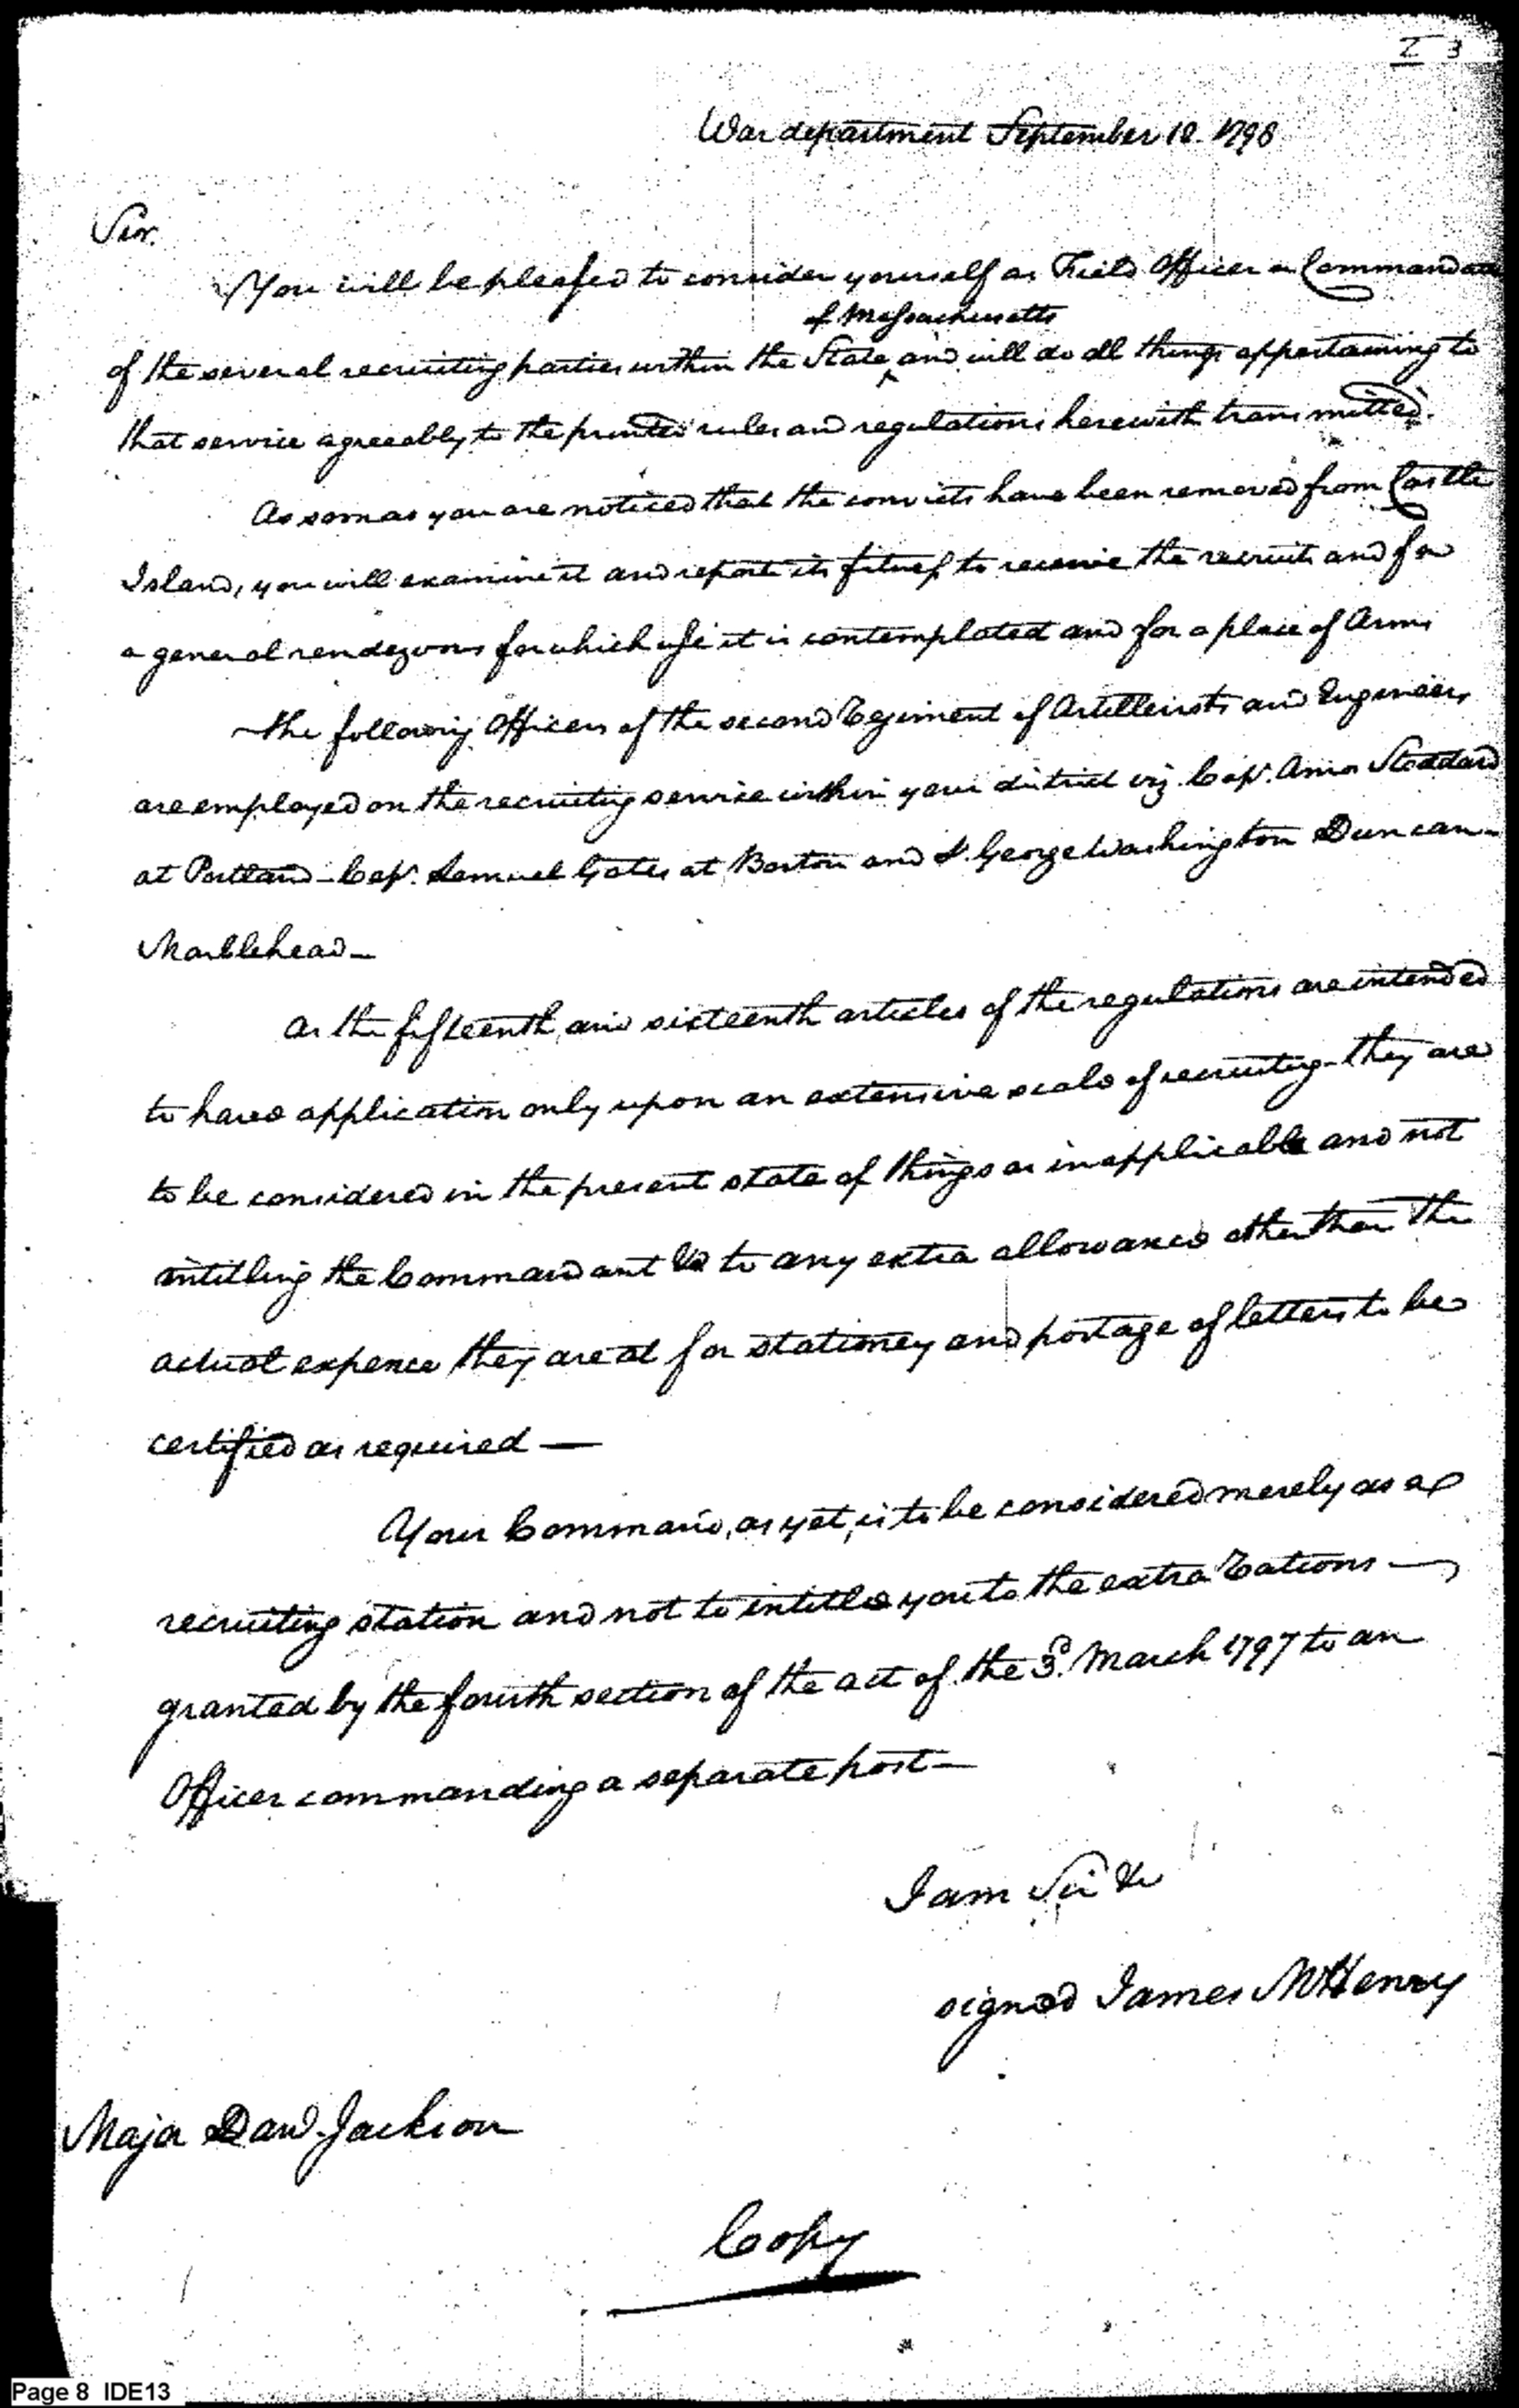 I 3
War department September 18. 1798
Sir.
You will be pleased to consider yourself as Field Officer or Commandant
of Massachusetts
of the several recruiting parties within the State ‸ and will do all things appertaining to
that service agreeably to the printed rules and regulations herewith transmitted.
As soon as you are noticed that the convicts have been removed from Castle
Island, you will examine it and report its fitness to receive the recruits and for
a general rendezvous for which use it is contemplated and for a place of Arms
The following Officers of the second Regiment of Artillerists and Engineers
are employed on the recruiting service within your district viz. Capt. Amos Stoddard
at Portland - Capt. Samuel Gates at Boston and Lt. George Washington Duncan -
Marblehead -
As the fifteenth and sixteenth articles of the regulations are intended
to have application only upon an extensive scale of recruiting - they are
to be considered in the present state of things as inapplicable and not
intitling the Commandant &c to any extra allowance other than the
actual expence they are at for stationey and postage of letters to be
certified as required —
Your Command, as yet, is to be considered merely as a
recruiting station and not to intitle you to the extra Rations —
granted by the fourth section of the act of the 3d. March 1797 to an
Officer commanding a separate post -
I am Sir &c
signed James McHenry
Major Danl. Jackson
Copy
Page 8 IDE13